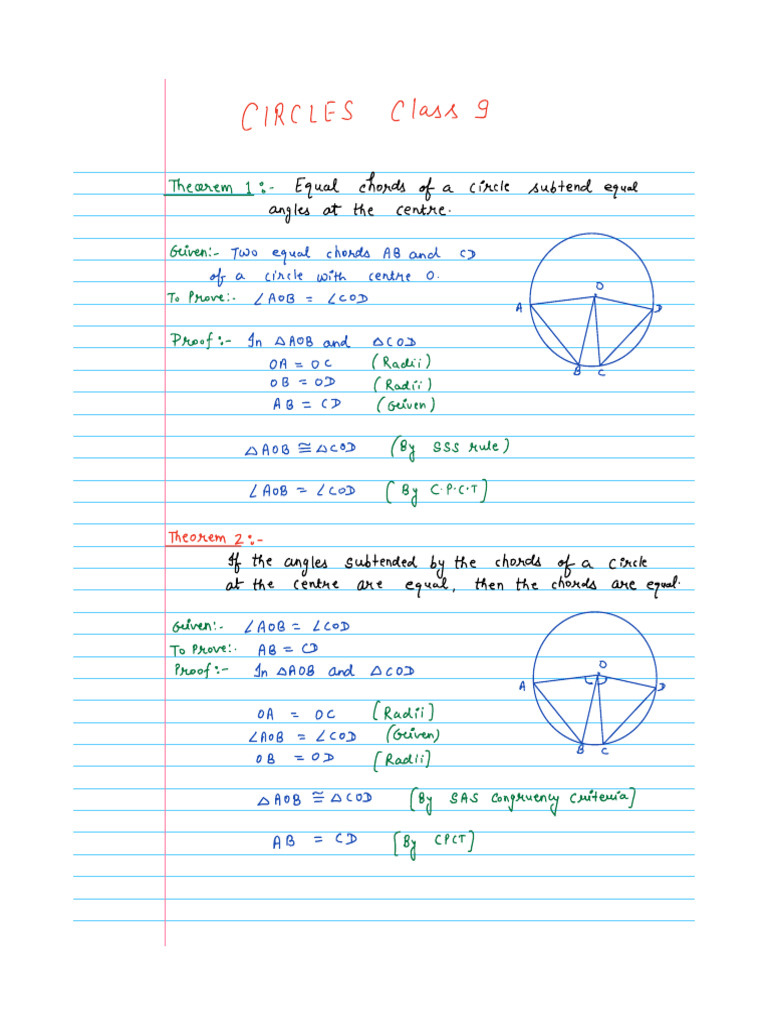 CIRCLES Class 9
Theorem 1:- Equal chords of a circle subtend equal
angles at the centre.
Given:- Two equal chords AB and CD
of a circle with centre O.
To Prove:- ∠AOB = ∠COD
Proof:- In △AOB and △COD
OA = OC (Radii)
OB = OD (Radii)
AB = CD (Given)
△AOB ≅ △COD (By SSS rule)
∠AOB = ∠COD [By C.P.C.T]
O
A
D
B
C
Theorem 2:-
If the angles subtended by the chords of a circle
at the centre are equal, then the chords are equal.
Given:- ∠AOB = ∠COD
To Prove:- AB = CD
Proof:- In △AOB and △COD
OA = OC [Radii]
∠AOB = ∠COD (Given)
OB = OD [Radii]
△AOB ≅ △COD [By SAS Congruency Criteria]
AB = CD [By CPCT]
O
A
D
B
C